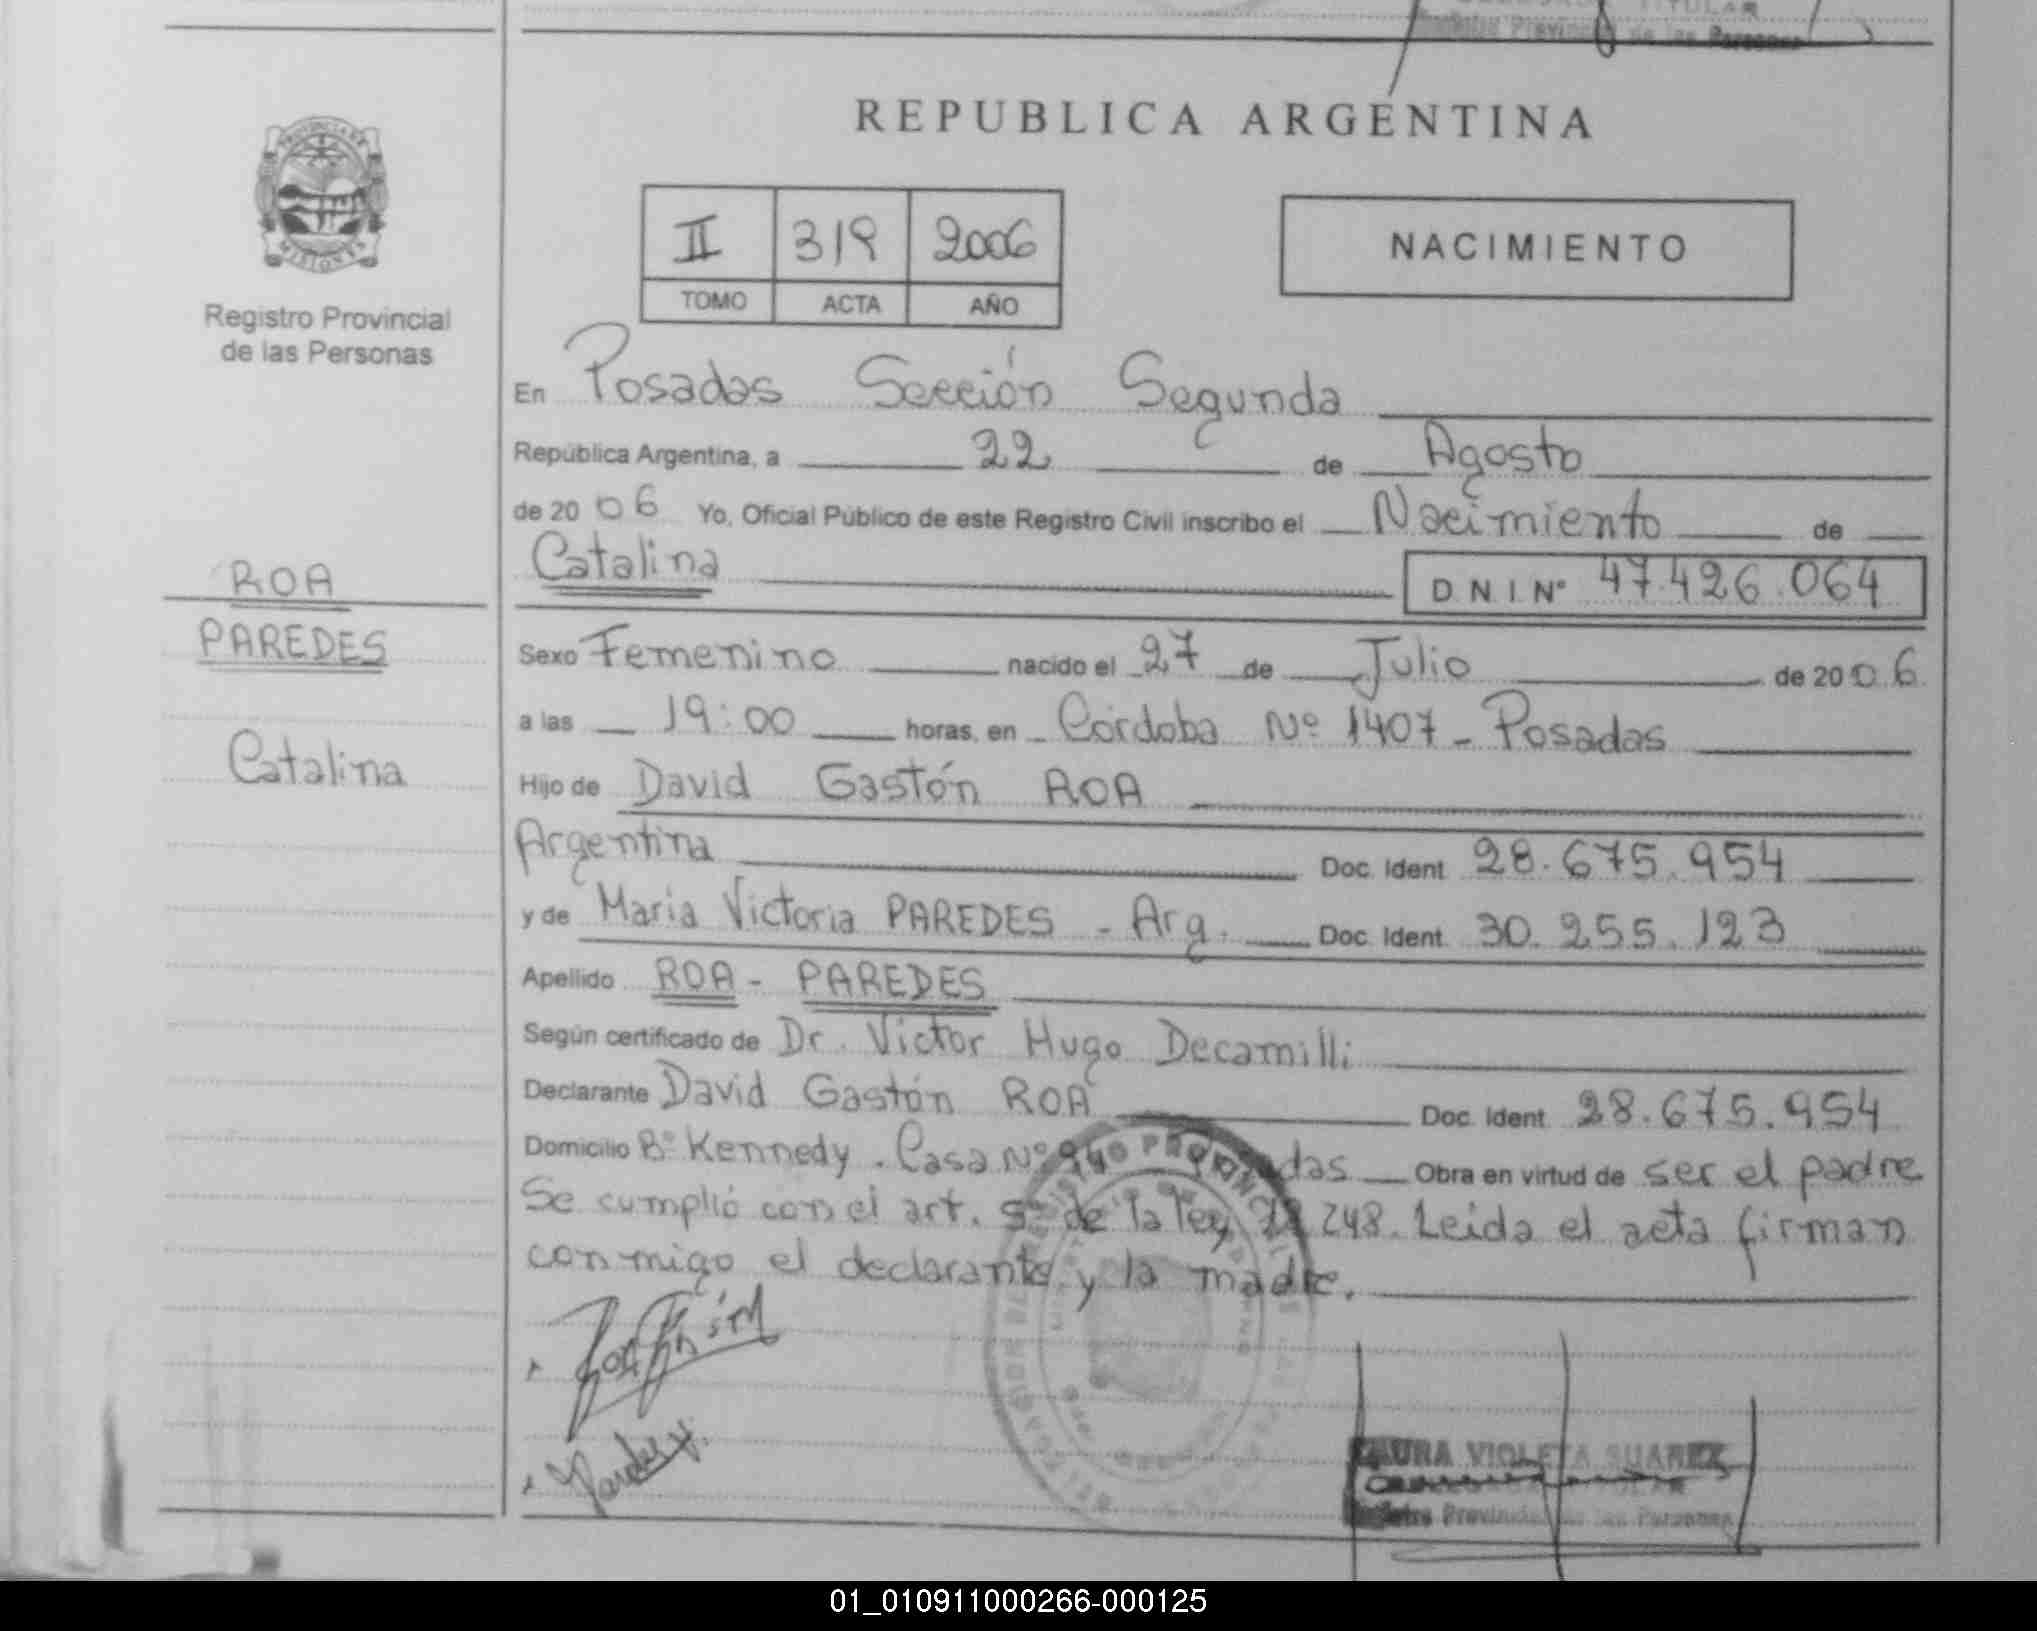 TITULAR
Registro Provincial de las Personas
REPUBLICA ARGENTINA
PROVINCIA DE
MISIONES
Registro Provincial
de las Personas
II 319 2006
TOMO ACTA AÑO
NACIMIENTO
En Posadas Sección Segunda
República Argentina, a 22 de Agosto
de 2006 Yo, Oficial Público de este Registro Civil inscribo el Nacimiento de
Catalina D.N.I. Nº 47.426.064
ROA
PAREDES
Catalina
Sexo Femenino nacido el 27 de Julio de 2006
a las 19:00 horas, en Córdoba Nº 1407 - Posadas
Hijo de David Gastón ROA
Argentina Doc. Ident. 28.675.954
y de Maria Victoria PAREDES - Arg. Doc. Ident. 30.255.123
Apellido ROA - PAREDES
Según certificado de Dr. Victor Hugo Decamilli
Declarante David Gastón ROA Doc. Ident. 28.675.954
Domicilio Bº Kennedy. Casa Nº Obra en virtud de ser el padre
Se cumplió con el art. 5º de la ley 248. Leida el acta firman
conmigo el declarante y la madre.
Paredes V.
LAURA VIOLETA SUAREZ
TITULAR
Registro Provincial de las Personas
01_010911000266-000125